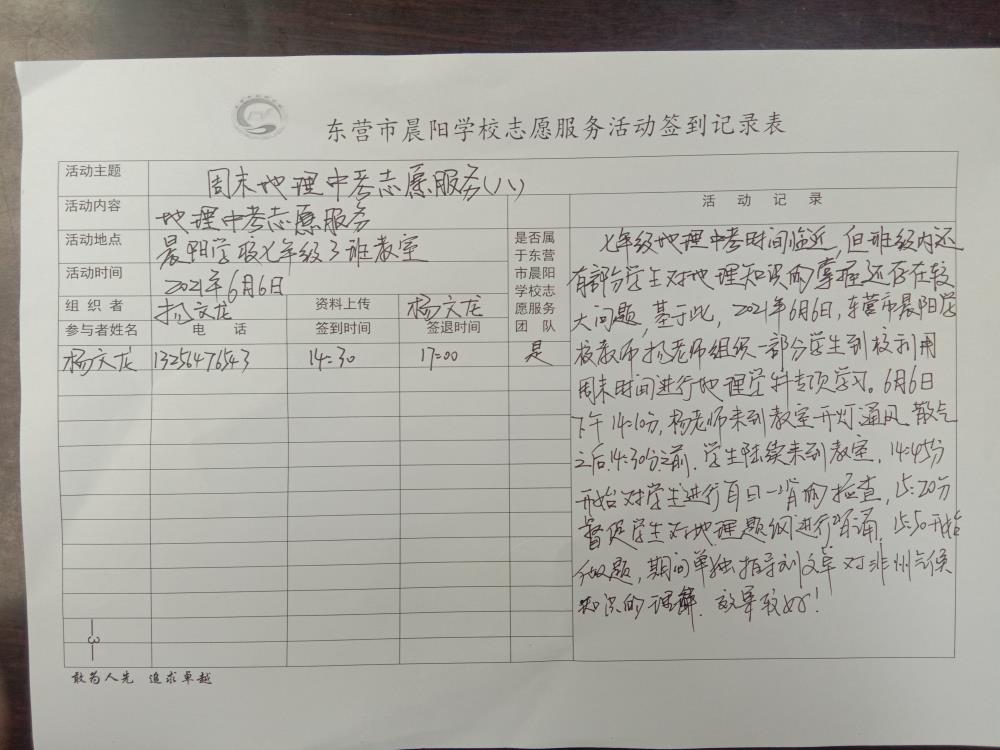 东营市晨阳学校志愿服务活动签到记录表
活动主题 周末地理中考志愿服务(八)
活动内容 地理中考志愿服务
活动地点 晨阳学校七年级3班教室
活动时间 2021年6月6日
组织者 杨文龙 资料上传 杨文龙
参与者姓名 电话 签到时间 签退时间
是否属
于东营
市晨阳
学校志
愿服务
团队
杨文龙 13256476543 14:30 17:00 是
活动记录
七年级地理中考时间临近,但班级内还
有部分学生对地理知识的掌握还存在较
大问题,基于此,2021年6月6日,东营市晨阳学
校教师杨老师组织一部分学生到校利用
周末时间进行地理学科专项学习。6月6日
下午14:10分,杨老师来到教室开灯通风,散气
之后.14:30分之前,学生陆续来到教室,14:45分
开始对学生进行每日一背的检查,15:20分
督促学生对地理题纲进行背诵,15:50开始
做题,期间单独指导刘文卓对非州气候
知识的理解,效果较好!
3
敢为人先 追求卓越